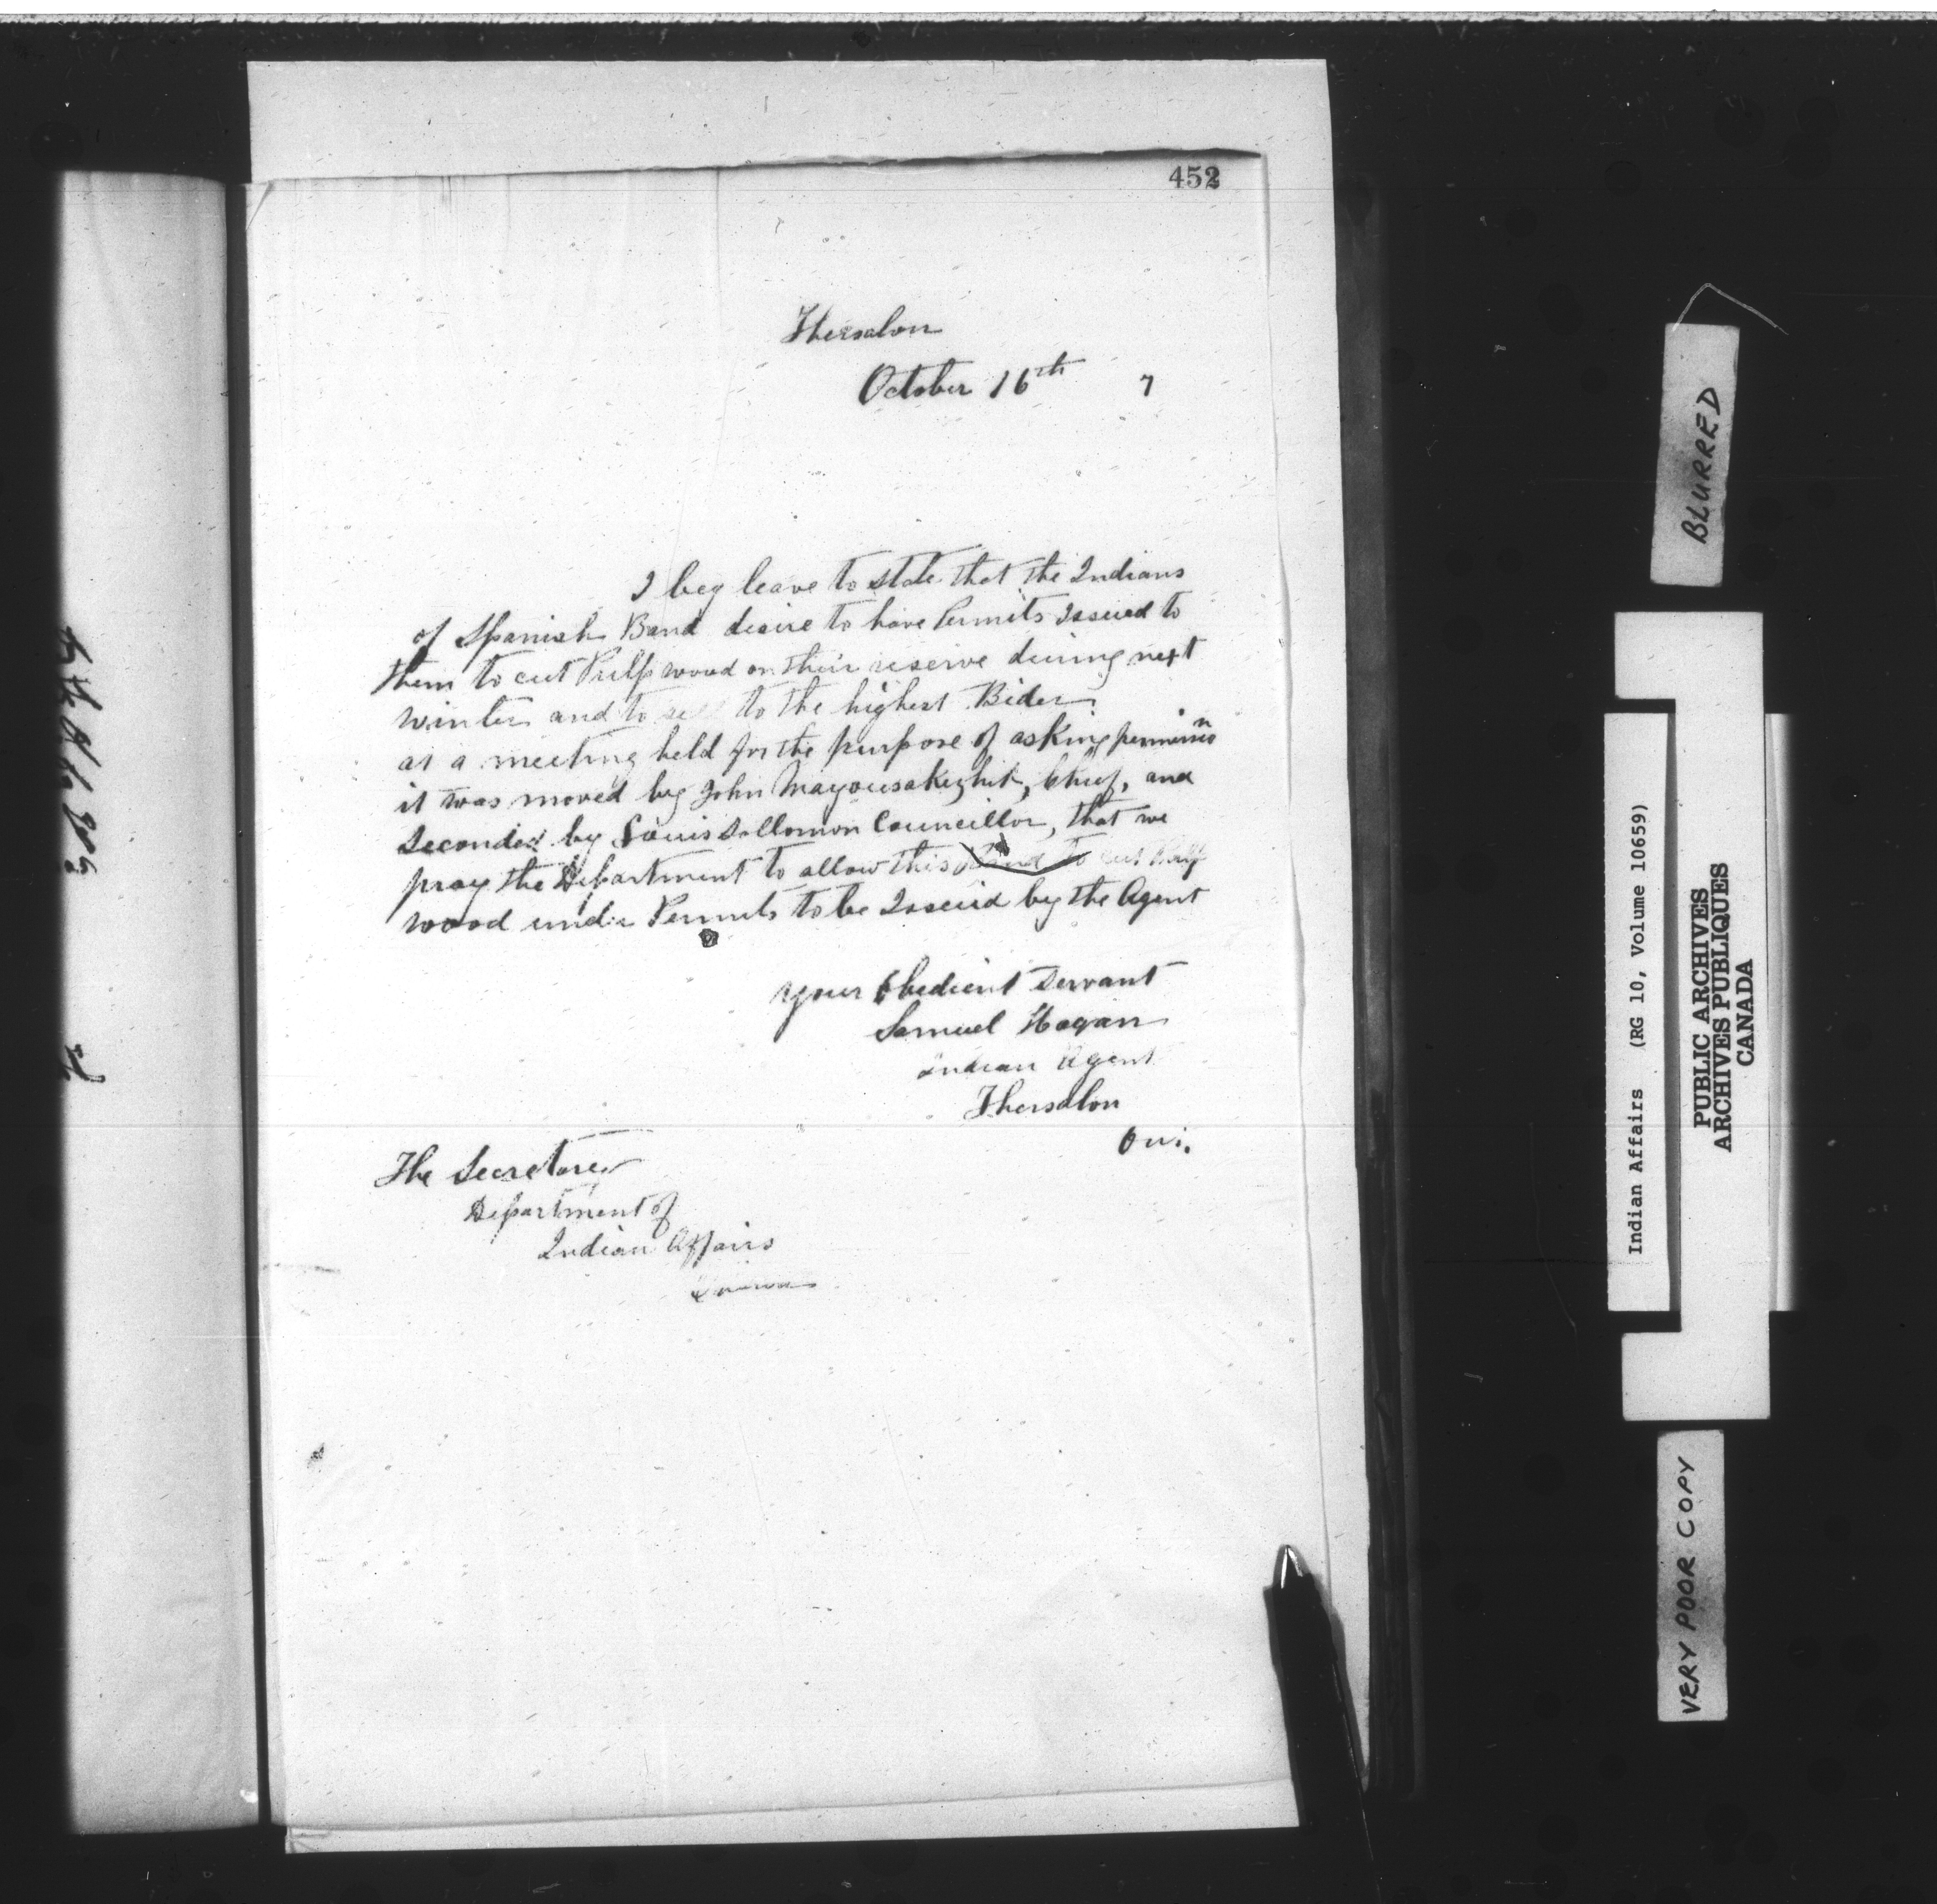 452
Thessalon
October 16th 7
I beg leave to state that the Indians
of Spanish Band desire to have Permits Issued to
them to cut Pulp wood on their reserve during next
winter and to sell to the highest Bider
at a meeting held for the purpose of asking permission
it was moved by John Mayousakeghik, Chief, and
Seconded by Louis Sollomon Councillor, that we
pray the Department to allow this Band to cut Pulp
wood under Permits to be Issued by the Agent
your Obedient Servant
Samuel Hagan
Indian Agent
Thessalon
Ont.
The Secretary
Department of
Indian Affairs
Ottawa
BLURRED
Indian Affairs (RG 10, Volume 10659)
PUBLIC ARCHIVES
ARCHIVES PUBLIQUES
CANADA
VERY POOR COPY